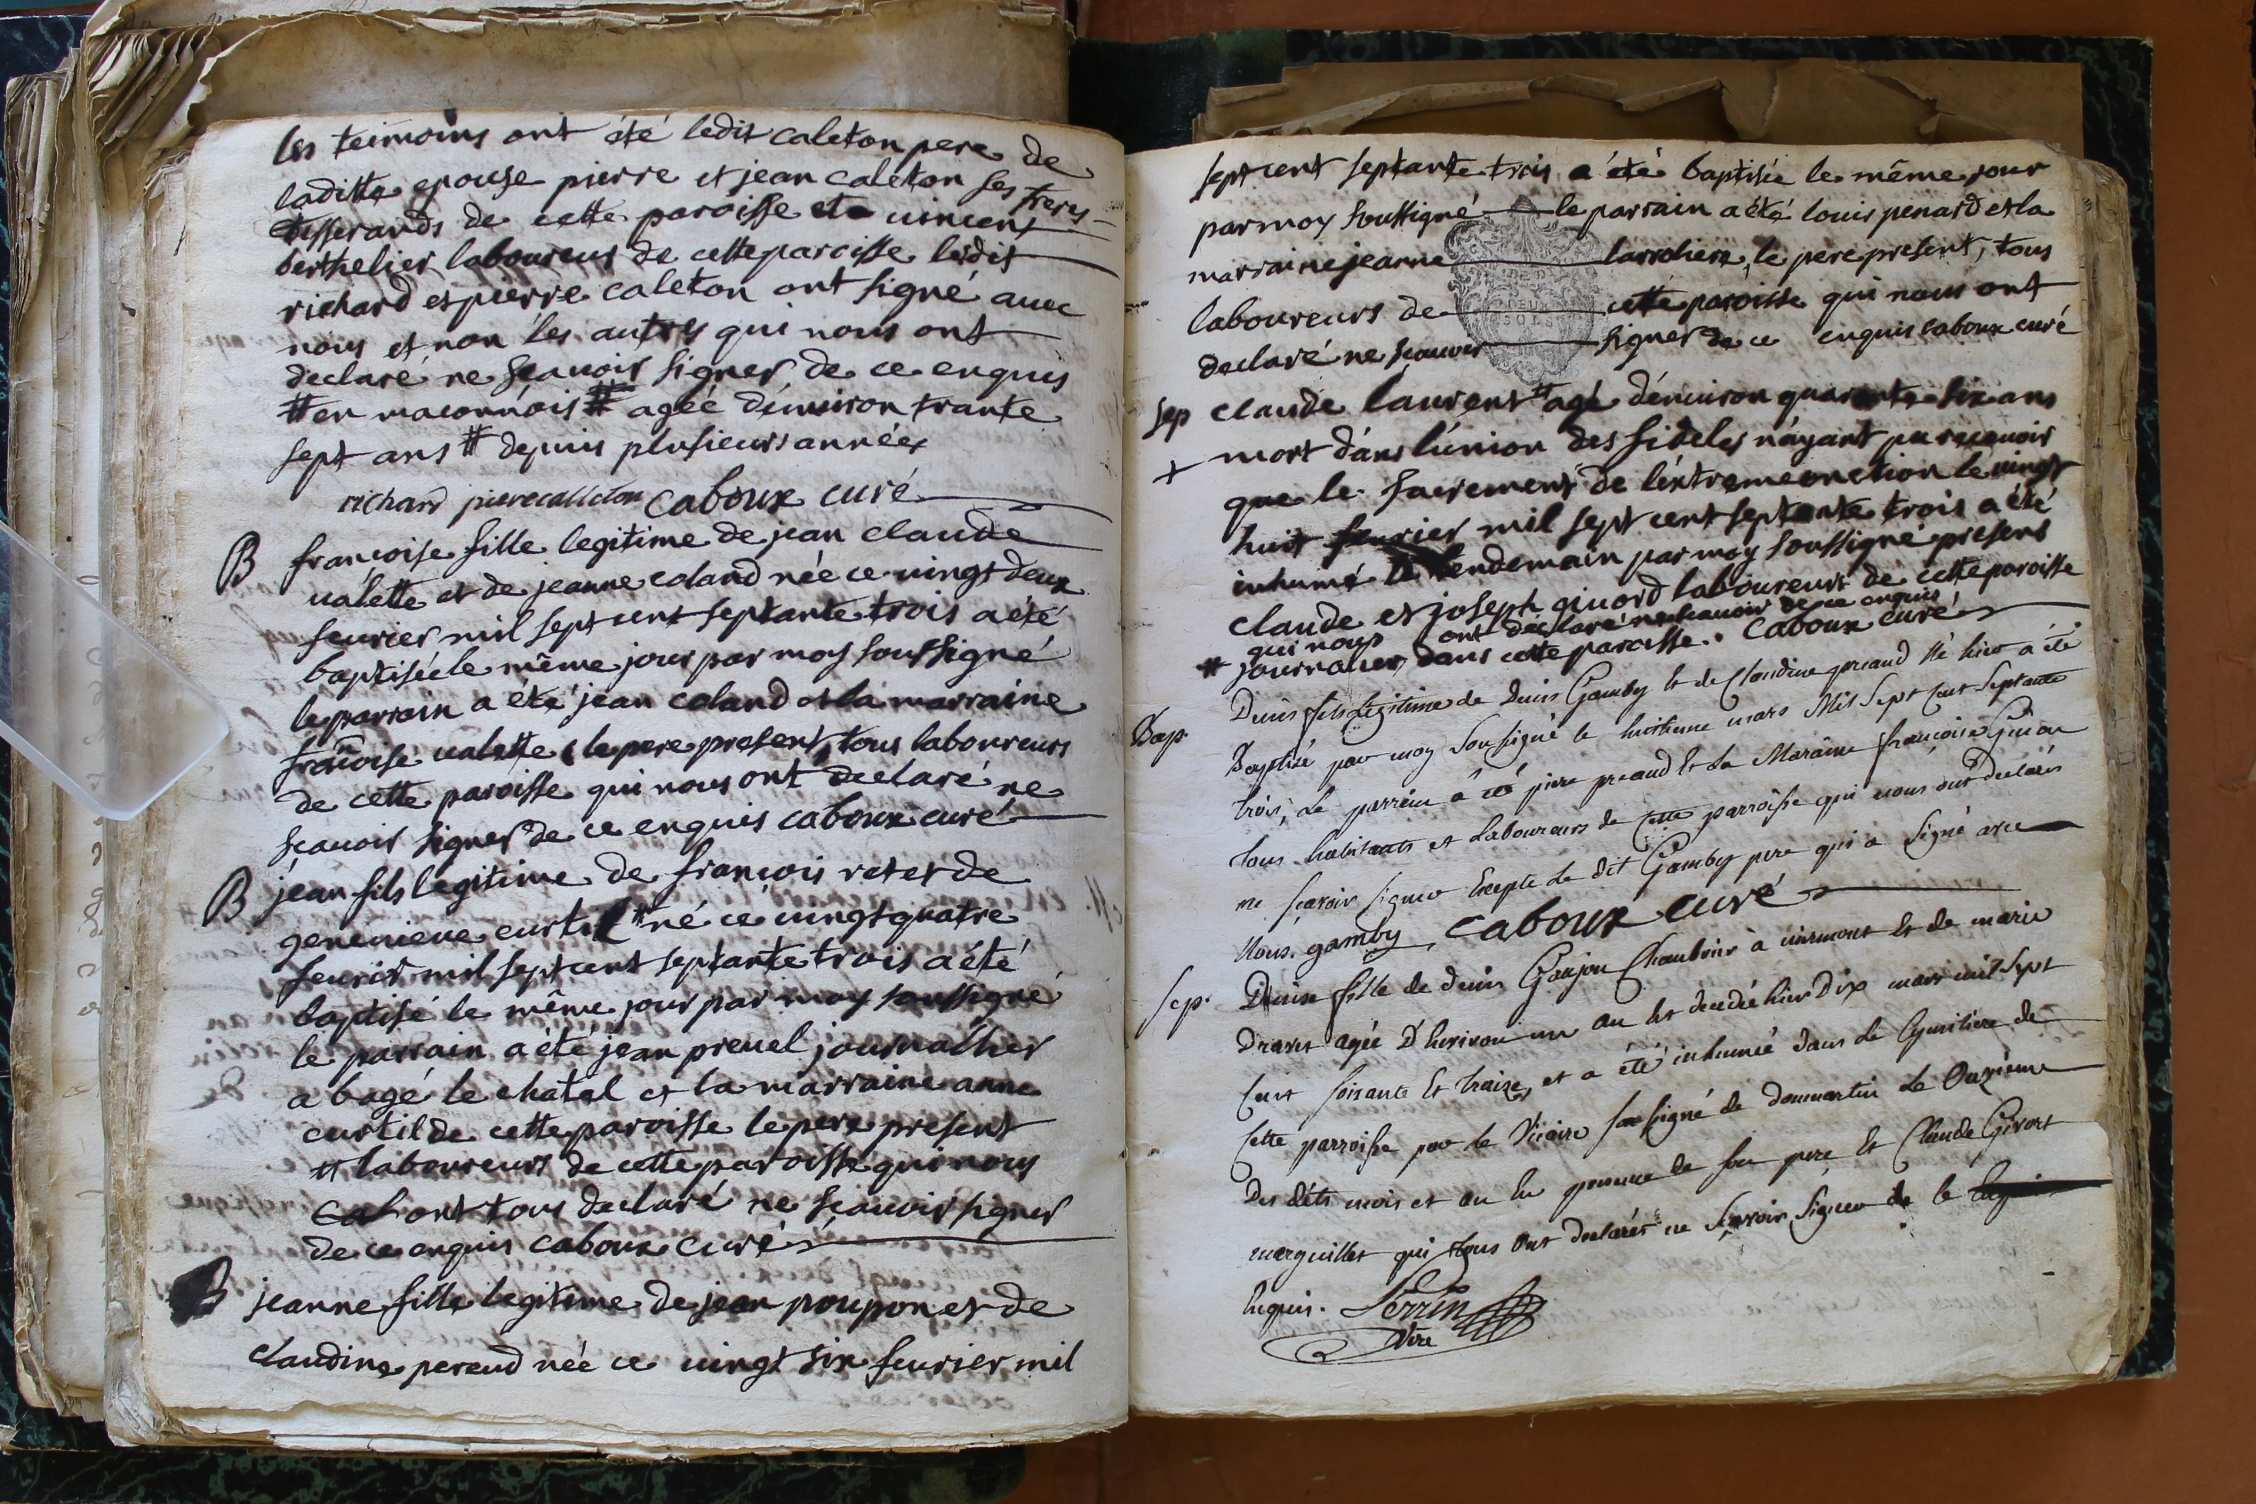 les teimoins ont été ledit caleton pere de
laditte epouse pierre et jean caleton ses freres
tisserands de cette paroisse et vincent
berthelier laboureur de cette paroisse lesdits
richard et pierre caleton ont signé avec
nous et non les autres qui nous ont
declaré ne sçavoir signer de ce enquis
# en maconnois # agée d'environ trante
sept ans # depuis plusieurs années
richard pierre calleton caboux curé
B françoise fille legitime de jean claude
valette et de jeanne coland née ce vingt deux
fevrier mil sept cent septante trois a été
baptisée le même jour par moy soussigné
le parrain a été jean coland et la marraine
françoise valette le pere present, tous laboureurs
de cette paroisse qui nous ont declaré ne
sçavoir signer de ce enquis caboux curé
B jean fils legitime de françois rater de
genevieve curtil # né ce vingt quatre
fevrier mil sept cent septante trois a été
baptisé le même jour par moy soussigné
le parrain a été jean prevel journallier
a bagé le chatel et la marraine anne
curtil de cette paroisse le pere present
# laboureurs de cette paroisse qui nous
ont tous declaré ne sçavoir signer
de ce enquis caboux curé
B jeanne fille legitime de jean poupon et de
claudine perend née ce vingt six fevrier mil
sept cent septante trois a été baptisée le même jour
par moy soussigné le parrain a été louis penard et la
marraine jeanne le pere present, tous
laboureurs de cette paroisse qui nous ont
declaré ne sçavoir signer de ce enquis caboux curé
sep claude laurent # agé d'environ quarante six ans
+ mort dans l'union des fideles n'ayant pu recevoir
que le sacrement de l'extremeonction le vingt
huit fevrier mil sept cent septante trois a été
inhumé le lendemain par moy soussigné presens
claude et joseph givord laboureurs de cette paroisse
qui nous ont declaré ne sçavoir de ce enquis
# journalier dans cette paroisse. caboux curé
Bap. Denis fils legitime de Denis Gamby et de Claudine preaud Né hier a été
Baptisé par moy Soussigné le huitieme mars Mil Sept Cent Septante
trois, Le parrein a été pierre preaud Et La Maraine françoise Guion
tous habitants et Laboureurs de Cette parroisse qui nous ont declarés
ne sçavoir signer Excepté Le dit Gamby pere qui a Signé avec
Nous. gamby caboux curé
sep. Denise fille de denis Goujon Chambrier à et de marie
agée D'environ un an Est decedée hier Dix mars mil sept
Cent soisante Et traize, et a été inhumée dans Le Cymitiere de
Cette parroisse par le Vicaire sousigné de dommartin Le Onzieme
Des dits mois et an En presence de son pere Et Claude Givort
marguillet qui tous Ont declarés ne Sçavoir Signer de ce
Enquis. Perrin
Vire